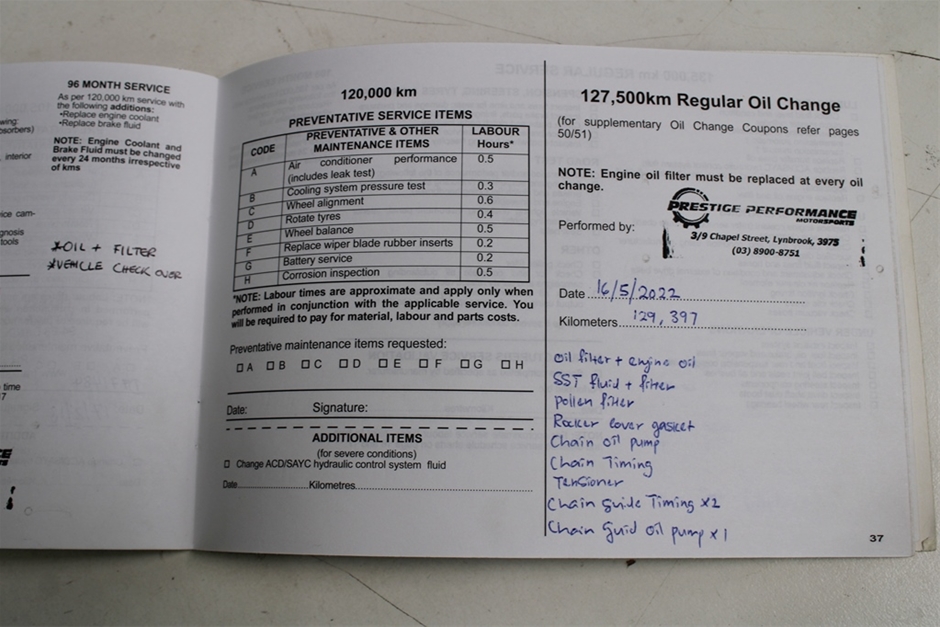 96 MONTH SERVICE
As per 120,000 km service with
the following additions:
•Replace engine coolant
•Replace brake fluid
NOTE: Engine Coolant and
Brake Fluid must be changed
every 24 months irrespective
of kms
wing:
osorbers)
, interior
ice cam-
gnosis
tools
*OIL + FILTER
*VEHICLE CHECK OVER
time
120,000 km
PREVENTATIVE SERVICE ITEMS
CODE PREVENTATIVE & OTHER MAINTENANCE ITEMS LABOUR Hours*
A Air conditioner performance (includes leak test) 0.5
B Cooling system pressure test 0.3
C Wheel alignment 0.6
D Rotate tyres 0.4
E Wheel balance 0.5
F Replace wiper blade rubber inserts 0.2
G Battery service 0.2
H Corrosion inspection 0.5
*NOTE: Labour times are approximate and apply only when
performed in conjunction with the applicable service. You
will be required to pay for material, labour and parts costs.
Preventative maintenance items requested:
A B C D E F G H
Date: Signature:
ADDITIONAL ITEMS
(for severe conditions)
Change ACD/SAYC hydraulic control system fluid
Date Kilometres
127,500km Regular Oil Change
(for supplementary Oil Change Coupons refer pages
50/51)
NOTE: Engine oil filter must be replaced at every oil
change.
PRESTIGE PERFORMANCE
MOTORSPORTS
Performed by:
3/9 Chapel Street, Lynbrook, 3975
(03) 8900-8751
Date 16/5/2022
Kilometers 129,397
oil filter + engine oil
SST fluid + filter
pollen filter
Rocker cover gasket
Chain oil pump
Chain Timing
Tensioner
Chain guide Timing x2
Chain guid oil pump x1
37